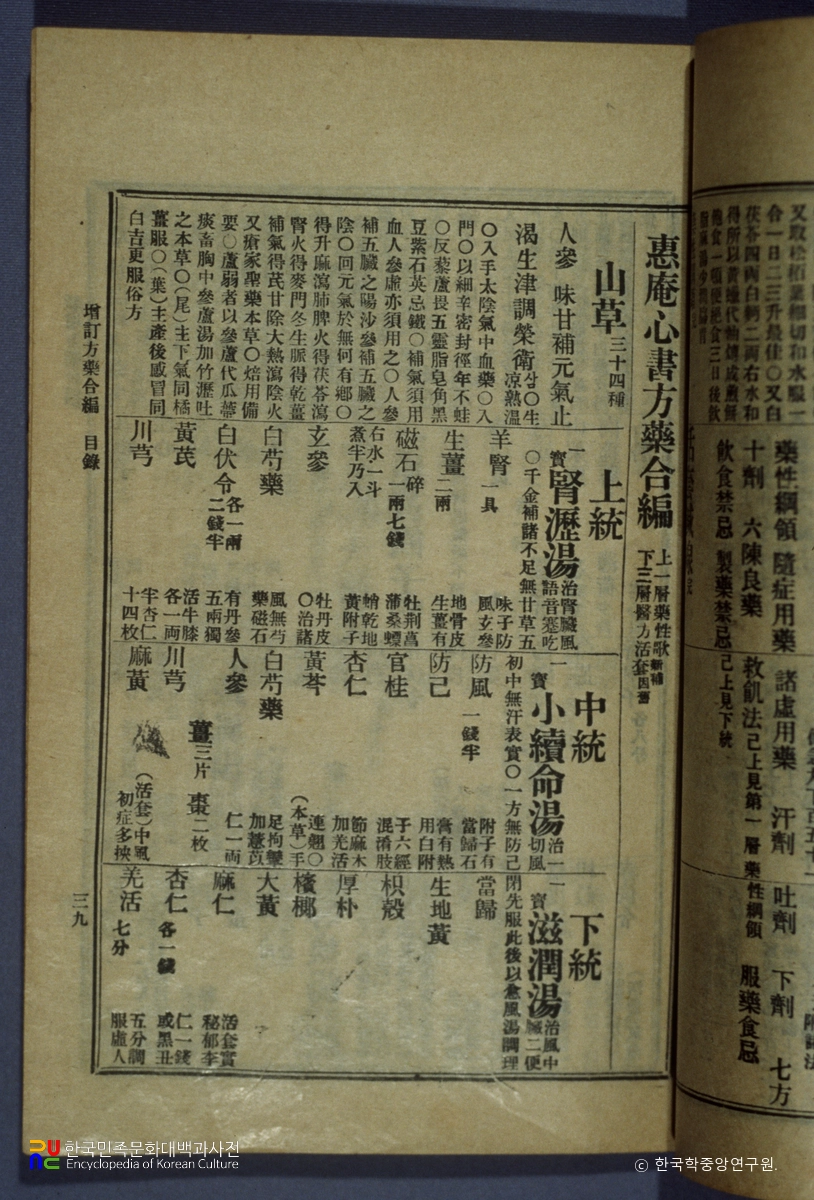 惠庵心書方藥合編 上一層藥性歌新補 下三層醫方活套因舊
山草 三十四種
人參 味甘補元氣止
渴生津調榮衛 삼○生凉熟溫
○入手太陰氣中血藥○入
門○以細辛密封徑年不蛀
○反藜蘆畏五靈脂皂角黑
豆紫石英忌鐵○補氣須用
血人參虛亦須用之○人參
補五臟之陽沙參補五臟之
陰○回元氣於無何有鄉○
得升麻瀉肺脾火得茯苓瀉
腎火得麥門冬生脈得乾薑
補氣得芪甘除大熱瀉陰火
又瘡家聖藥本草○焙用備
要○蘆弱者以參蘆代瓜蔕
痰畜胸中參蘆湯加竹瀝吐
之本草○(尾)主下氣同橘
薑服○(葉)主產後感冒同
白吉更服俗方
上統
一寶 腎瀝湯 治腎臟風語音蹇吃
○千金補諸不足無甘草五
味子防風玄參
羊腎 一具
地骨皮生薑有
生薑 二兩
牡荊蒲桑螵
磁石 碎 一兩七錢
蛸乾地黃附子
右水一斗煮半乃入
牡丹皮○治諸
玄參
風無芍藥磁石
白芍藥
有丹參五兩獨
白伏令 各一兩二錢半
活牛膝各一兩
黃芪
半杏仁十四枚
川芎
中統
一寶 小續命湯 治一切風
初中無汗表實○一方無防己
防風 一錢半
附子有當歸石
防己
膏有熱用白附
官桂
于六經混淆肢
杏仁
節麻木加羌活
黃芩
連翹○(本草)手
白芍藥
足拘攣加薏苡
人參
仁一兩
川芎
薑三片 棗二枚
麻黃
(活套)中風初症多挾
下統
一寶 滋潤湯 治風中臟二便
閉先服此後以愈風湯調理
當歸
生地黃
枳殼
厚朴
檳榔
大黃
麻仁
活套實秘郁李
杏仁 各一錢
仁一錢或黑丑
羌活 七分
五分調服虛人
增訂方藥合編 目錄
三九
藥性綱領 隨症用藥 諸虛用藥 汗劑 吐劑 下劑 七方
十劑 六陳良藥 救飢法 己上見第一層 藥性綱領 服藥食忌
飮食禁忌 製藥禁忌 己上見下統
한국민족문화대백과사전
Encyclopedia of Korean Culture
© 한국학중앙연구원.